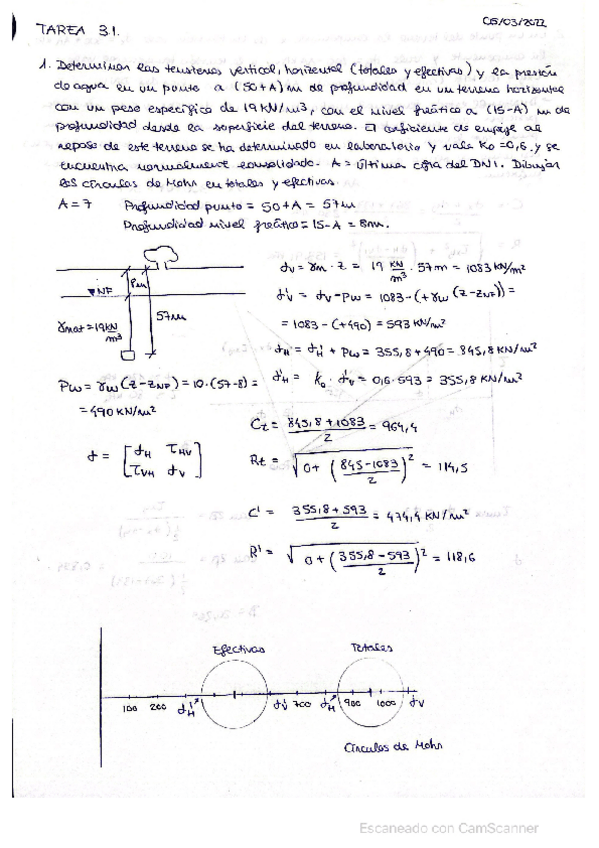 TAREA 3.1.
05/03/2022
1. Determinar las tensiones vertical, horizontal (totales y efectivas) y la presión
de agua en un punto a (50+A) m de profundidad en un terreno horizontal
con un peso específico de 19 KN/m3, con el nivel freático a (15-A) m de
profundidad desde la superficie del terreno. El coeficiente de empuje al
reposo de este terreno se ha determinado en laboratorio y vale Ko=0,6. y se
encuentra normalmente consolidado. A = última cifra del DNI. Dibujar
los círculos de Mohr en totales y efectivas.
A = 7 Profundidad punto = 50+A = 57m
Profundidad nivel freático = 15-A = 8m.
8m
NF
57m
γnat = 19 KN/m³
σv = γn · z = 19 KN/m³ · 57m = 1083 KN/m²
σ'v = σv - Pw = 1083 - (+γw (z - zNF)) =
= 1083 - (+490) = 593 KN/m²
σH = σ'H + Pw = 355,8 + 490 = 845,8 KN/m²
Pw = γw (z - zNF) = 10 · (57-8) =
= 490 KN/m²
σ'H = ko · σ'v = 0,6 · 593 = 355,8 KN/m²
Ct = (845,8 + 1083)/2 = 964,4
σ = [σH τHV
τVH σV]
Rt = √(0 + ((845-1083)/2)²) = 114,5
C' = (355,8 + 593)/2 = 474,4 KN/m²
R' = √(0 + ((355,8 - 593)/2)²) = 118,6
Efectivas Totales
100 200 σ'H σ'v 700 σH 900 1000 σv
Círculos de Mohr
Escaneado con CamScanner